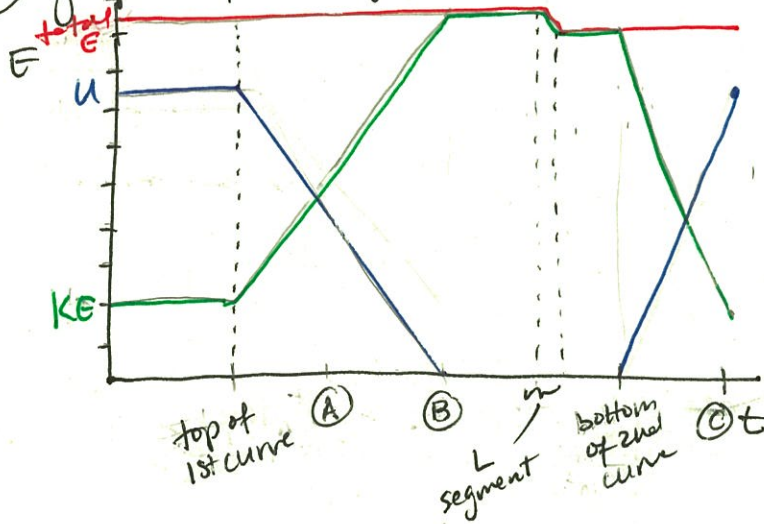 total
E
E
U
KE
top of
1st curve
A
B
L
segment
bottom
of 2nd
curve
C
t